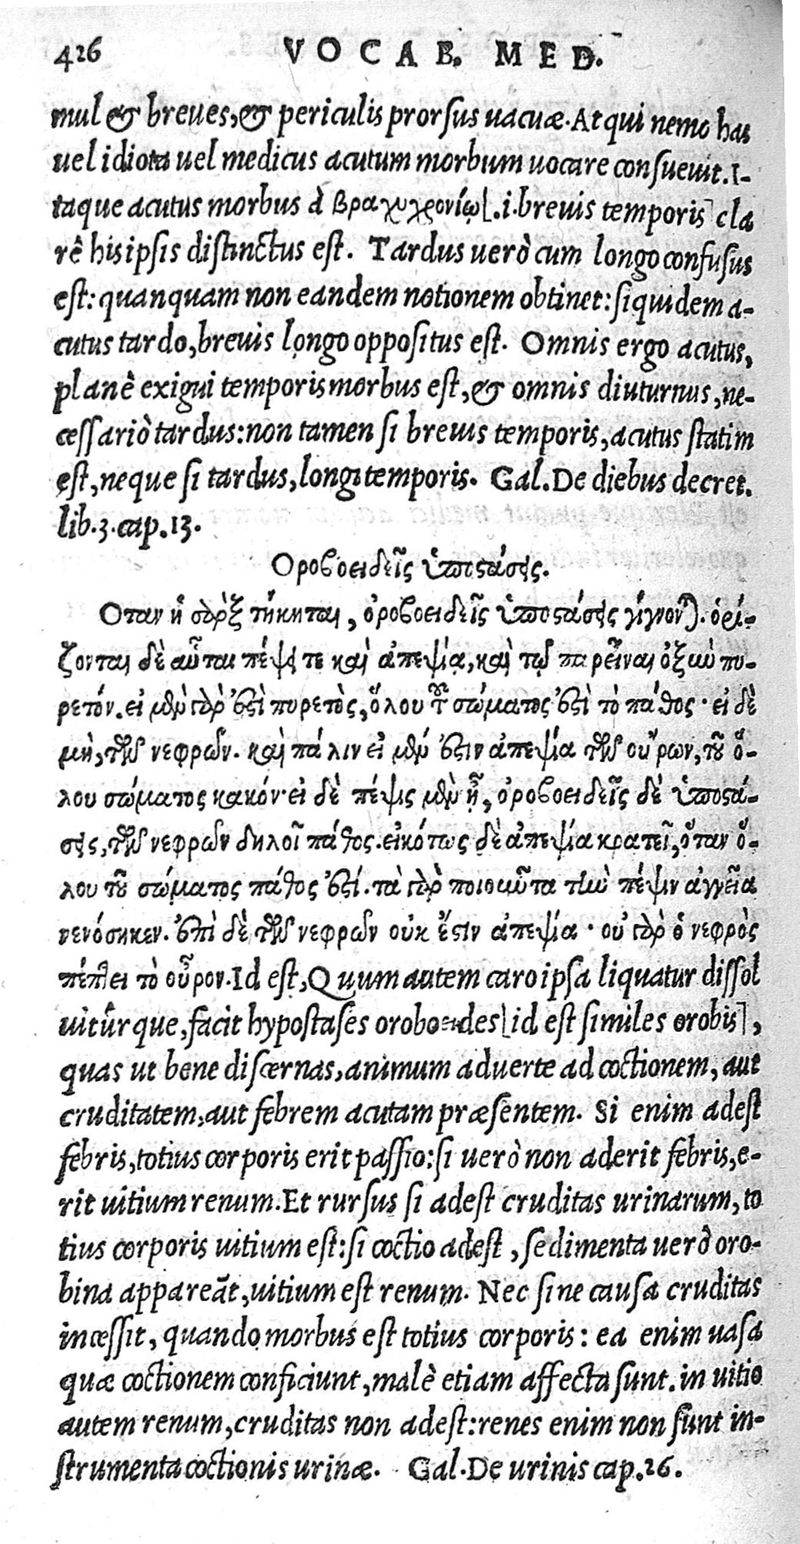 426 VOCAB. MED.
mul & breues, & periculis prorsus uacuæ. At qui nemo has
uel idiota uel medicus acutum morbum uocare consueuit. I-
taque acutus morbus à βραχυχρονίῳ [.i. breuis temporis] cla
rè his ipsis distinctus est. Tardus uerò cum longo confusus
est: quanquam non eandem notionem obtinet: siquidem a-
cutus tardo, breuis longo oppositus est. Omnis ergo acutus,
planè exigui temporis morbus est, & omnis diuturnus, ne-
cessariò tardus: non tamen si breuis temporis, acutus statim
est, neque si tardus, longi temporis. Gal. De diebus decret.
lib. 3. cap. 13.
Οροβοειδεῖς ὑποστάσεις.
Οταν ἡ σὰρξ τήκηται, ὀροβοειδεῖς ὑποστάσεις γίγνονται. ὁρί-
ζονται δὲ αὗται πέψει τε καὶ ἀπεψίᾳ, καὶ τῷ παρεῖναι ὀξὺν πυ-
ρετόν. εἰ μὲν γὰρ ἐστὶ πυρετὸς, ὅλου τοῦ σώματος ἐστὶ τὸ πάθος· εἰ δὲ
μὴ, τῶν νεφρῶν. καὶ πάλιν εἰ μὲν ἐστὶν ἀπεψία τῶν οὔρων, τοῦ ὅ-
λου σώματος κακόν· εἰ δὲ πέψις μὲν ᾖ, ὀροβοειδεῖς δὲ ὑποστά-
σεις, τῶν νεφρῶν δηλοῖ πάθος. εἰκότως δὲ ἀπεψία κρατεῖ, ὅταν ὅ-
λου τοῦ σώματος πάθος ἐστί. τὰ γὰρ ποιοῦντα τὴν πέψιν ἀγγεῖα
νενόσηκεν. ἐπὶ δὲ τῶν νεφρῶν οὐκ ἔστιν ἀπεψία· οὐ γὰρ ὁ νεφρὸς
πέπτει τὸ οὖρον. Id est, Quum autem caro ipsa liquatur dissol
uitúrque, facit hypostases oroboeides [id est similes orobis],
quas ut bene discernas, animum aduerte ad coctionem, aut
cruditatem, aut febrem acutam præsentem. Si enim adest
febris, totius corporis erit passio: si uerò non aderit febris, e-
rit uitium renum. Et rursus si adest cruditas urinarum, to
tius corporis uitium est: si coctio adest, sedimenta uerò oro-
bina appareãt, uitium est renum. Nec sine causa cruditas
incessit, quando morbus est totius corporis: ea enim uasa
quæ coctionem conficiunt, malè etiam affecta sunt. in uitio
autem renum, cruditas non adest: renes enim non sunt in-
strumenta coctionis urinæ. Gal. De urinis cap. 26.